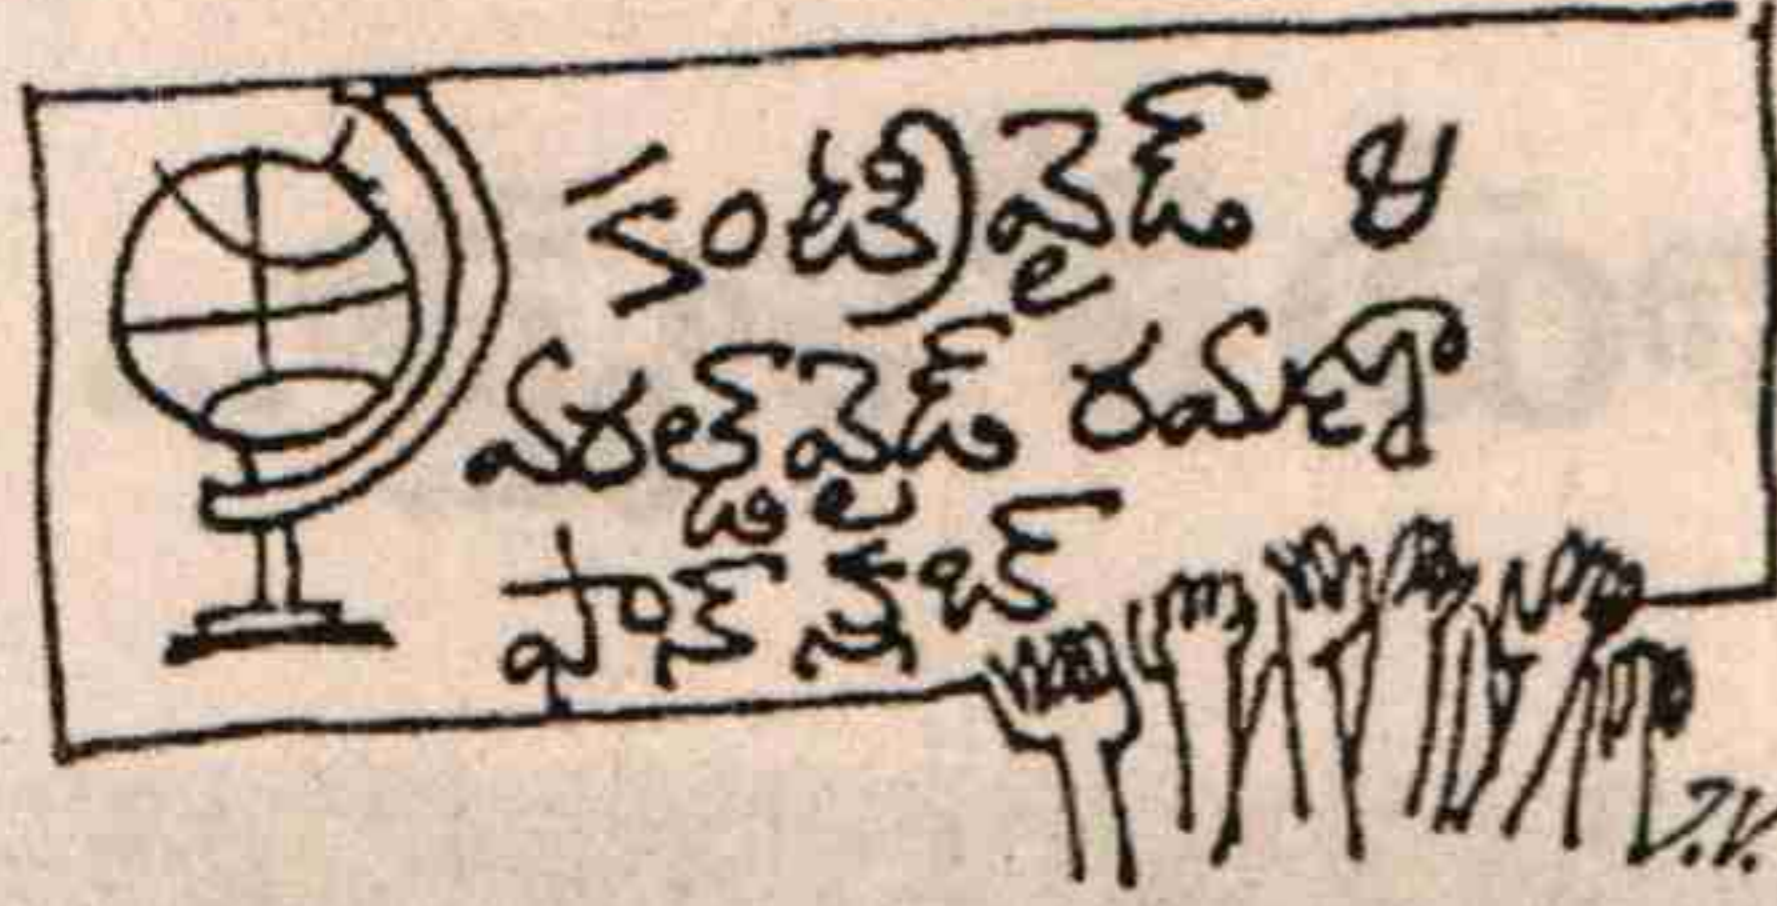 కంట్రీవైడ్ &
వరల్డ్‌వైడ్ రమణా
ఫాన్స్ క్లబ్